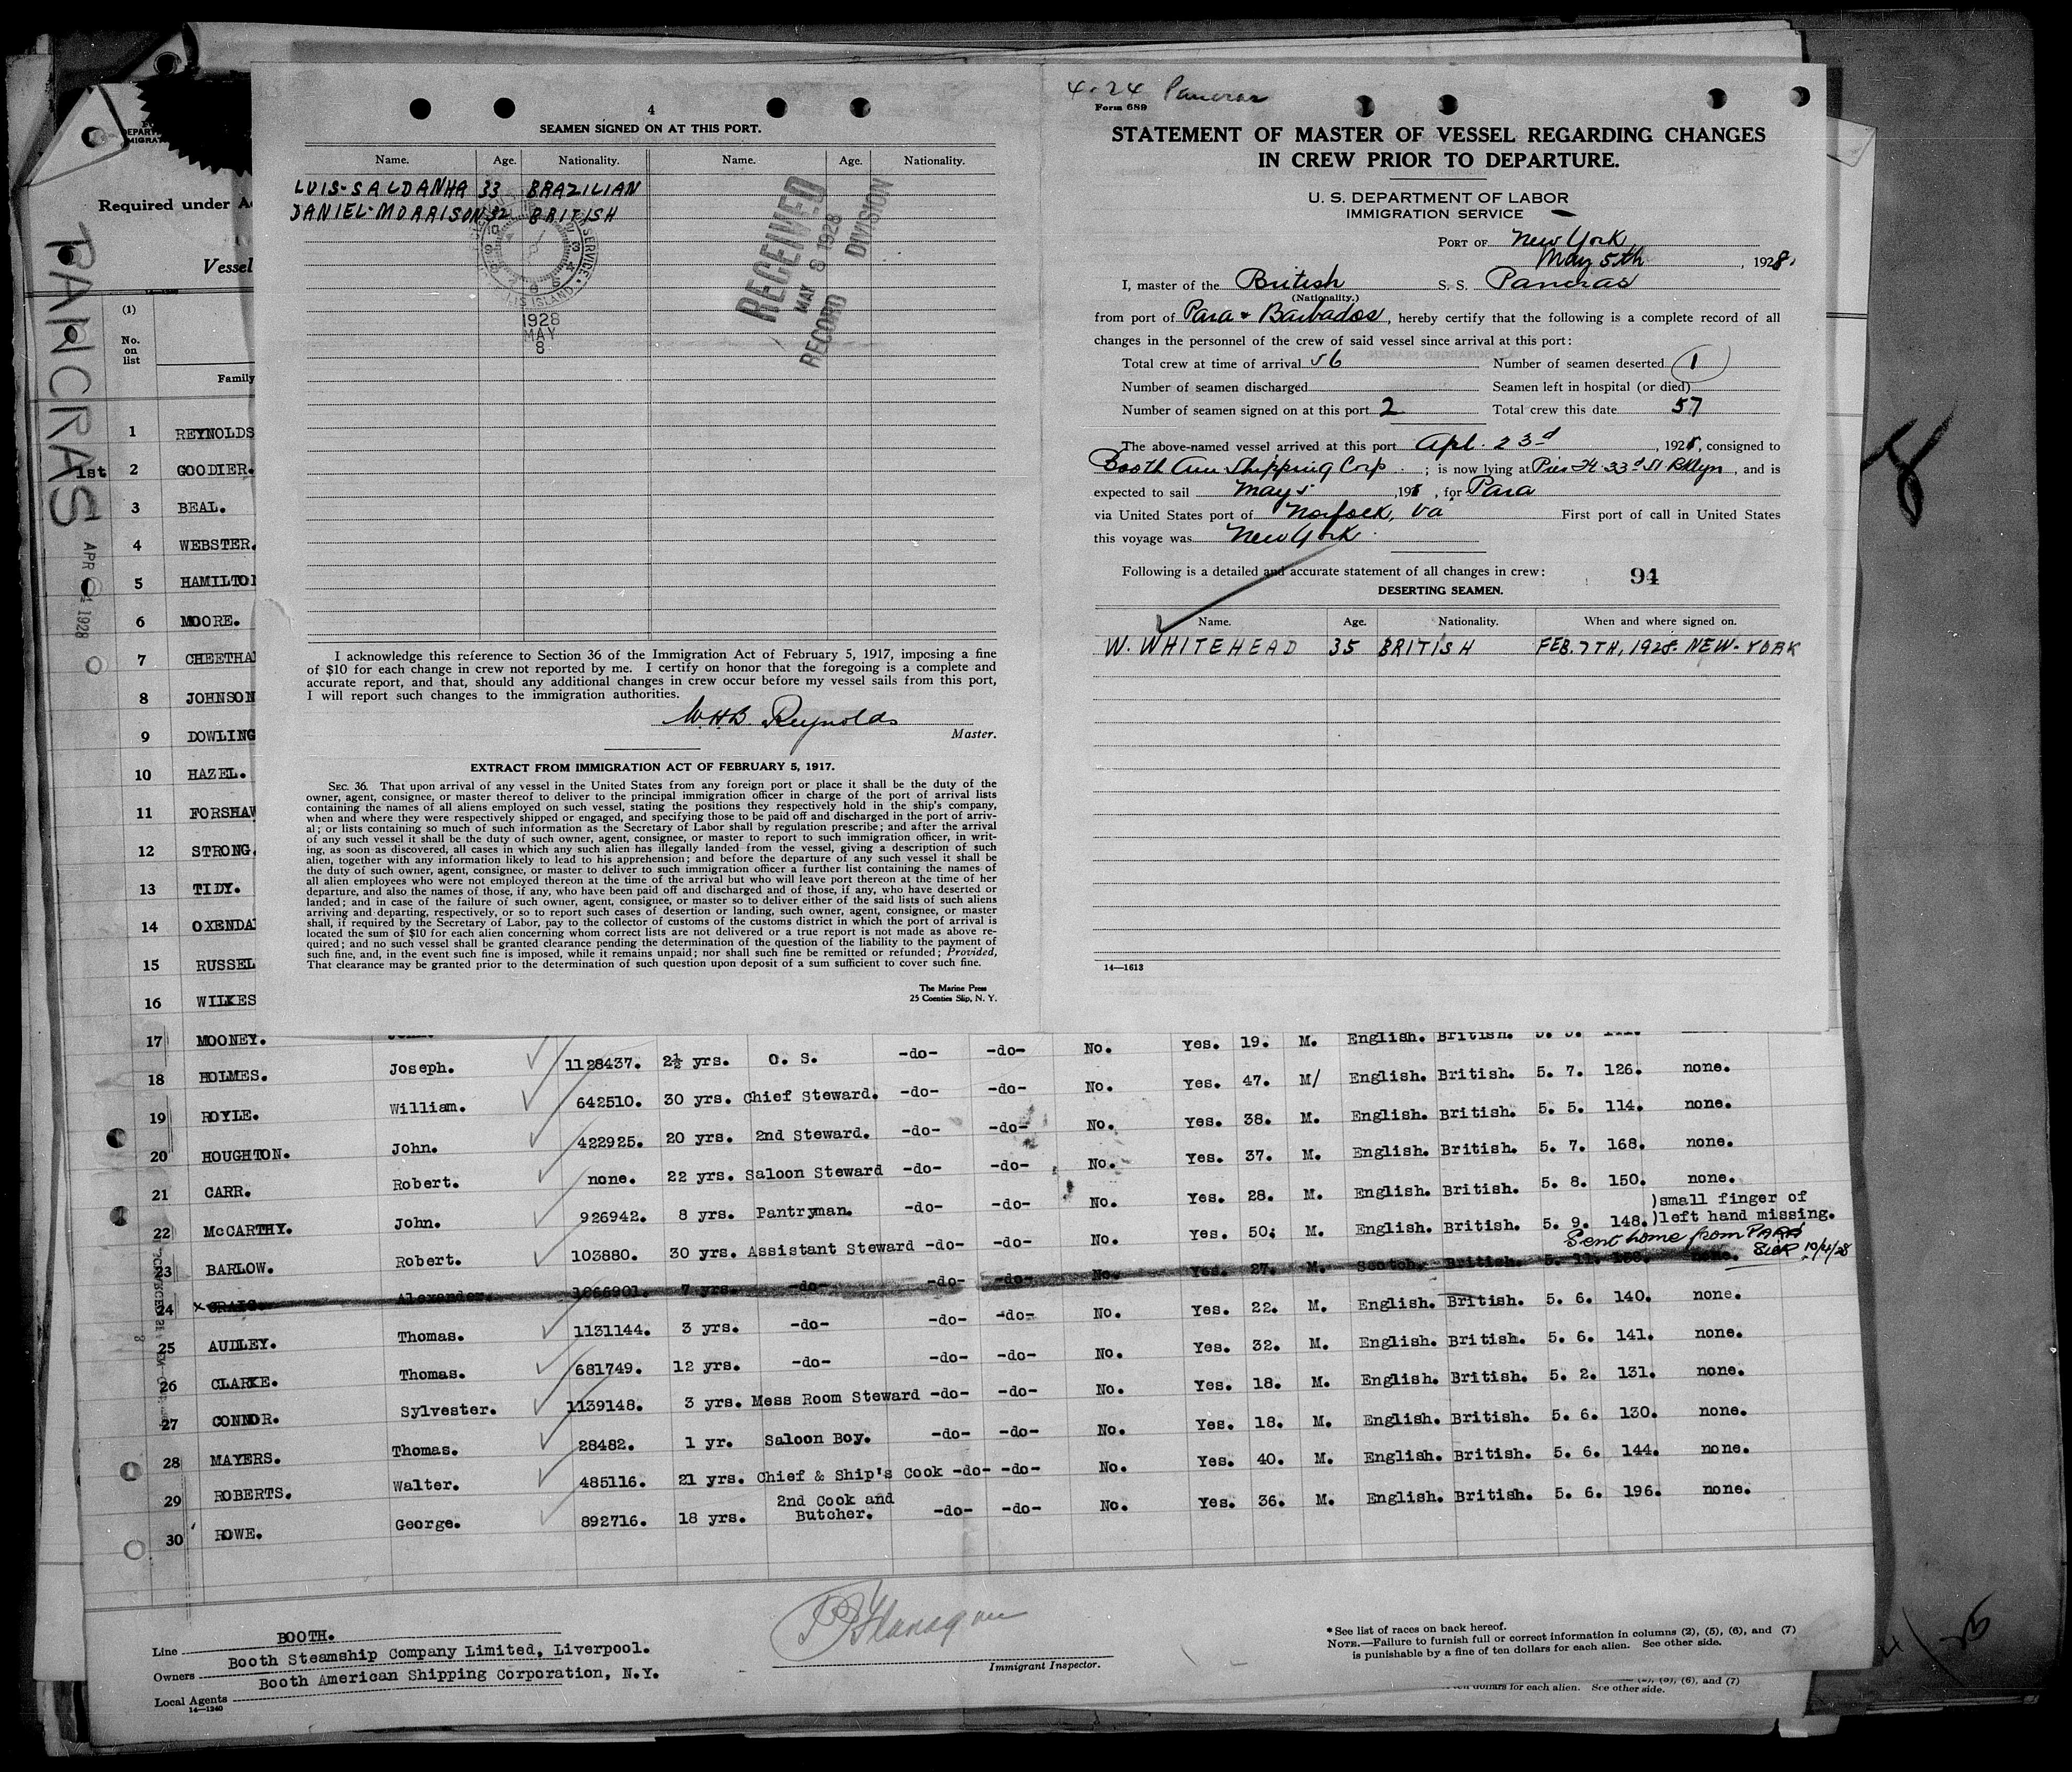 4
SEAMEN SIGNED ON AT THIS PORT.
Name. Age. Nationality. Name. Age. Nationality.
LUIS-SALDANHA 33 BRAZILIAN
DANIEL-MORRISON 32 BRITISH
SERVICE
ELLIS ISLAND
1928
MAY
8
RECEIVED
MAY 8 1928
RECORD DIVISION
I acknowledge this reference to Section 36 of the Immigration Act of February 5, 1917, imposing a fine
of $10 for each change in crew not reported by me. I certify on honor that the foregoing is a complete and
accurate report, and that, should any additional changes in crew occur before my vessel sails from this port,
I will report such changes to the immigration authorities.
W.H.B. Reynolds
Master.
EXTRACT FROM IMMIGRATION ACT OF FEBRUARY 5, 1917.
SEC. 36. That upon arrival of any vessel in the United States from any foreign port or place it shall be the duty of the
owner, agent, consignee, or master thereof to deliver to the principal immigration officer in charge of the port of arrival lists
containing the names of all aliens employed on such vessel, stating the positions they respectively hold in the ship's company,
when and where they were respectively shipped or engaged, and specifying those to be paid off and discharged in the port of arriv-
al; or lists containing so much of such information as the Secretary of Labor shall by regulation prescribe; and after the arrival
of any such vessel it shall be the duty of such owner, agent, consignee, or master to report to such immigration officer, in writ-
ing, as soon as discovered, all cases in which any such alien has illegally landed from the vessel, giving a description of such
alien, together with any information likely to lead to his apprehension; and before the departure of any such vessel it shall be
the duty of such owner, agent, consignee, or master to deliver to such immigration officer a further list containing the names of
all alien employees who were not employed thereon at the time of the arrival but who will leave port thereon at the time of her
departure, and also the names of those, if any, who have been paid off and discharged and of those, if any, who have deserted or
landed; and in case of the failure of such owner, agent, consignee, or master so to deliver either of the said lists of such aliens
arriving and departing, respectively, or so to report such cases of desertion or landing, such owner, agent, consignee, or master
shall, if required by the Secretary of Labor, pay to the collector of customs of the customs district in which the port of arrival is
located the sum of $10 for each alien concerning whom correct lists are not delivered or a true report is not made as above re-
quired; and no such vessel shall be granted clearance pending the determination of the question of the liability to the payment of
such fine, and, in the event such fine is imposed, while it remains unpaid; nor shall such fine be remitted or refunded; Provided,
That clearance may be granted prior to the determination of such question upon deposit of a sum sufficient to cover such fine.
The Marine Press
25 Coenties Slip, N. Y.
4.24 Pancras
Form 689
STATEMENT OF MASTER OF VESSEL REGARDING CHANGES
IN CREW PRIOR TO DEPARTURE.
U. S. DEPARTMENT OF LABOR
IMMIGRATION SERVICE
PORT OF New York
May 5th, 1928.
I, master of the British S. S. Pancras
(Nationality.)
from port of Para & Barbados, hereby certify that the following is a complete record of all
changes in the personnel of the crew of said vessel since arrival at this port:
Total crew at time of arrival 56 Number of seamen deserted 1
Number of seamen discharged Seamen left in hospital (or died)
Number of seamen signed on at this port 2 Total crew this date 57
The above-named vessel arrived at this port Apl. 23d, 1928, consigned to
Booth Am Shipping Corp.; is now lying at Pier 24 33d St Bklyn, and is
expected to sail May 5, 198, for Para
via United States port of Norfolk, Va First port of call in United States
this voyage was New York.
Following is a detailed and accurate statement of all changes in crew: 94
DESERTING SEAMEN.
Name. Age. Nationality. When and where signed on.
W. WHITEHEAD 35 BRITISH FEB. 7TH, 1928. NEW-YORK
14—1613
PANCRAS
APR 1928
Required under A
Vessel
(1)
No.
on
list
Family
1 REYNOLDS
1st 2 GOODIER.
3 BEAL.
4 WEBSTER.
5 HAMILTO
6 MOORE.
7 CHEETHA
8 JOHNSON
9 DOWLING
10 HAZEL.
11 FORSHAW
12 STRONG.
13 TIDY.
14 OXENDA
15 RUSSEL
16 WILKES
17 MOONEY. John.
18 HOLMES. Joseph. 1128437. 2½ yrs. O. S. -do- -do- No. Yes. 19. M. English. British. 5. 5.
19 ROYLE. William. 642510. 30 yrs. Chief Steward. -do- -do- No. Yes. 47. M/ English. British. 5. 7. 126. none.
20 HOUGHTON. John. 422925. 20 yrs. 2nd Steward. -do- -do- No. Yes. 38. M. English. British. 5. 5. 114. none.
21 CARR. Robert. none. 22 yrs. Saloon Steward -do- -do- No. Yes. 37. M. English. British. 5. 7. 168. none.
22 McCARTHY. John. 926942. 8 yrs. Pantryman. -do- -do- No. Yes. 28. M. English. British. 5. 8. 150. none.
23 BARLOW. Robert. 103880. 30 yrs. Assistant Steward -do- -do- No. Yes. 50. M. English. British. 5. 9. 148. )small finger of
)left hand missing.
Sent home from PARA
Sick 10/4/28
24 x CRAIG. Alexander. 1066901. 7 yrs. -do- -do- -do- No. Yes. 27. M. Scotch. British. 5. 11. 158. none.
25 AUDLEY. Thomas. 1131144. 3 yrs. -do- -do- -do- No. Yes. 22. M. English. British. 5. 6. 140. none.
26 CLARKE. Thomas. 681749. 12 yrs. -do- -do- -do- No. Yes. 32. M. English. British. 5. 6. 141. none.
27 CONNOR. Sylvester. 1139148. 3 yrs. Mess Room Steward -do- -do- No. Yes. 18. M. English. British. 5. 2. 131. none.
28 MAYERS. Thomas. 28482. 1 yr. Saloon Boy. -do- -do- No. Yes. 18. M. English. British. 5. 6. 130. none.
29 ROBERTS. Walter. 485116. 21 yrs. Chief & Ship's Cook -do- -do- No. Yes. 40. M. English. British. 5. 6. 144. none.
30 ROWE. George. 892716. 18 yrs. 2nd Cook and Butcher. -do- -do- No. Yes. 36. M. English. British. 5. 6. 196. none.
Line BOOTH.
Owners Booth Steamship Company Limited, Liverpool.
Local Agents Booth American Shipping Corporation, N.Y.
14—1240
Flanagan
Immigrant Inspector.
* See list of races on back hereof.
NOTE.—Failure to furnish full or correct information in columns (2), (5), (6), and (7)
is punishable by a fine of ten dollars for each alien. See other side.
(5), (6), and (7)
ten dollars for each alien. See other side.